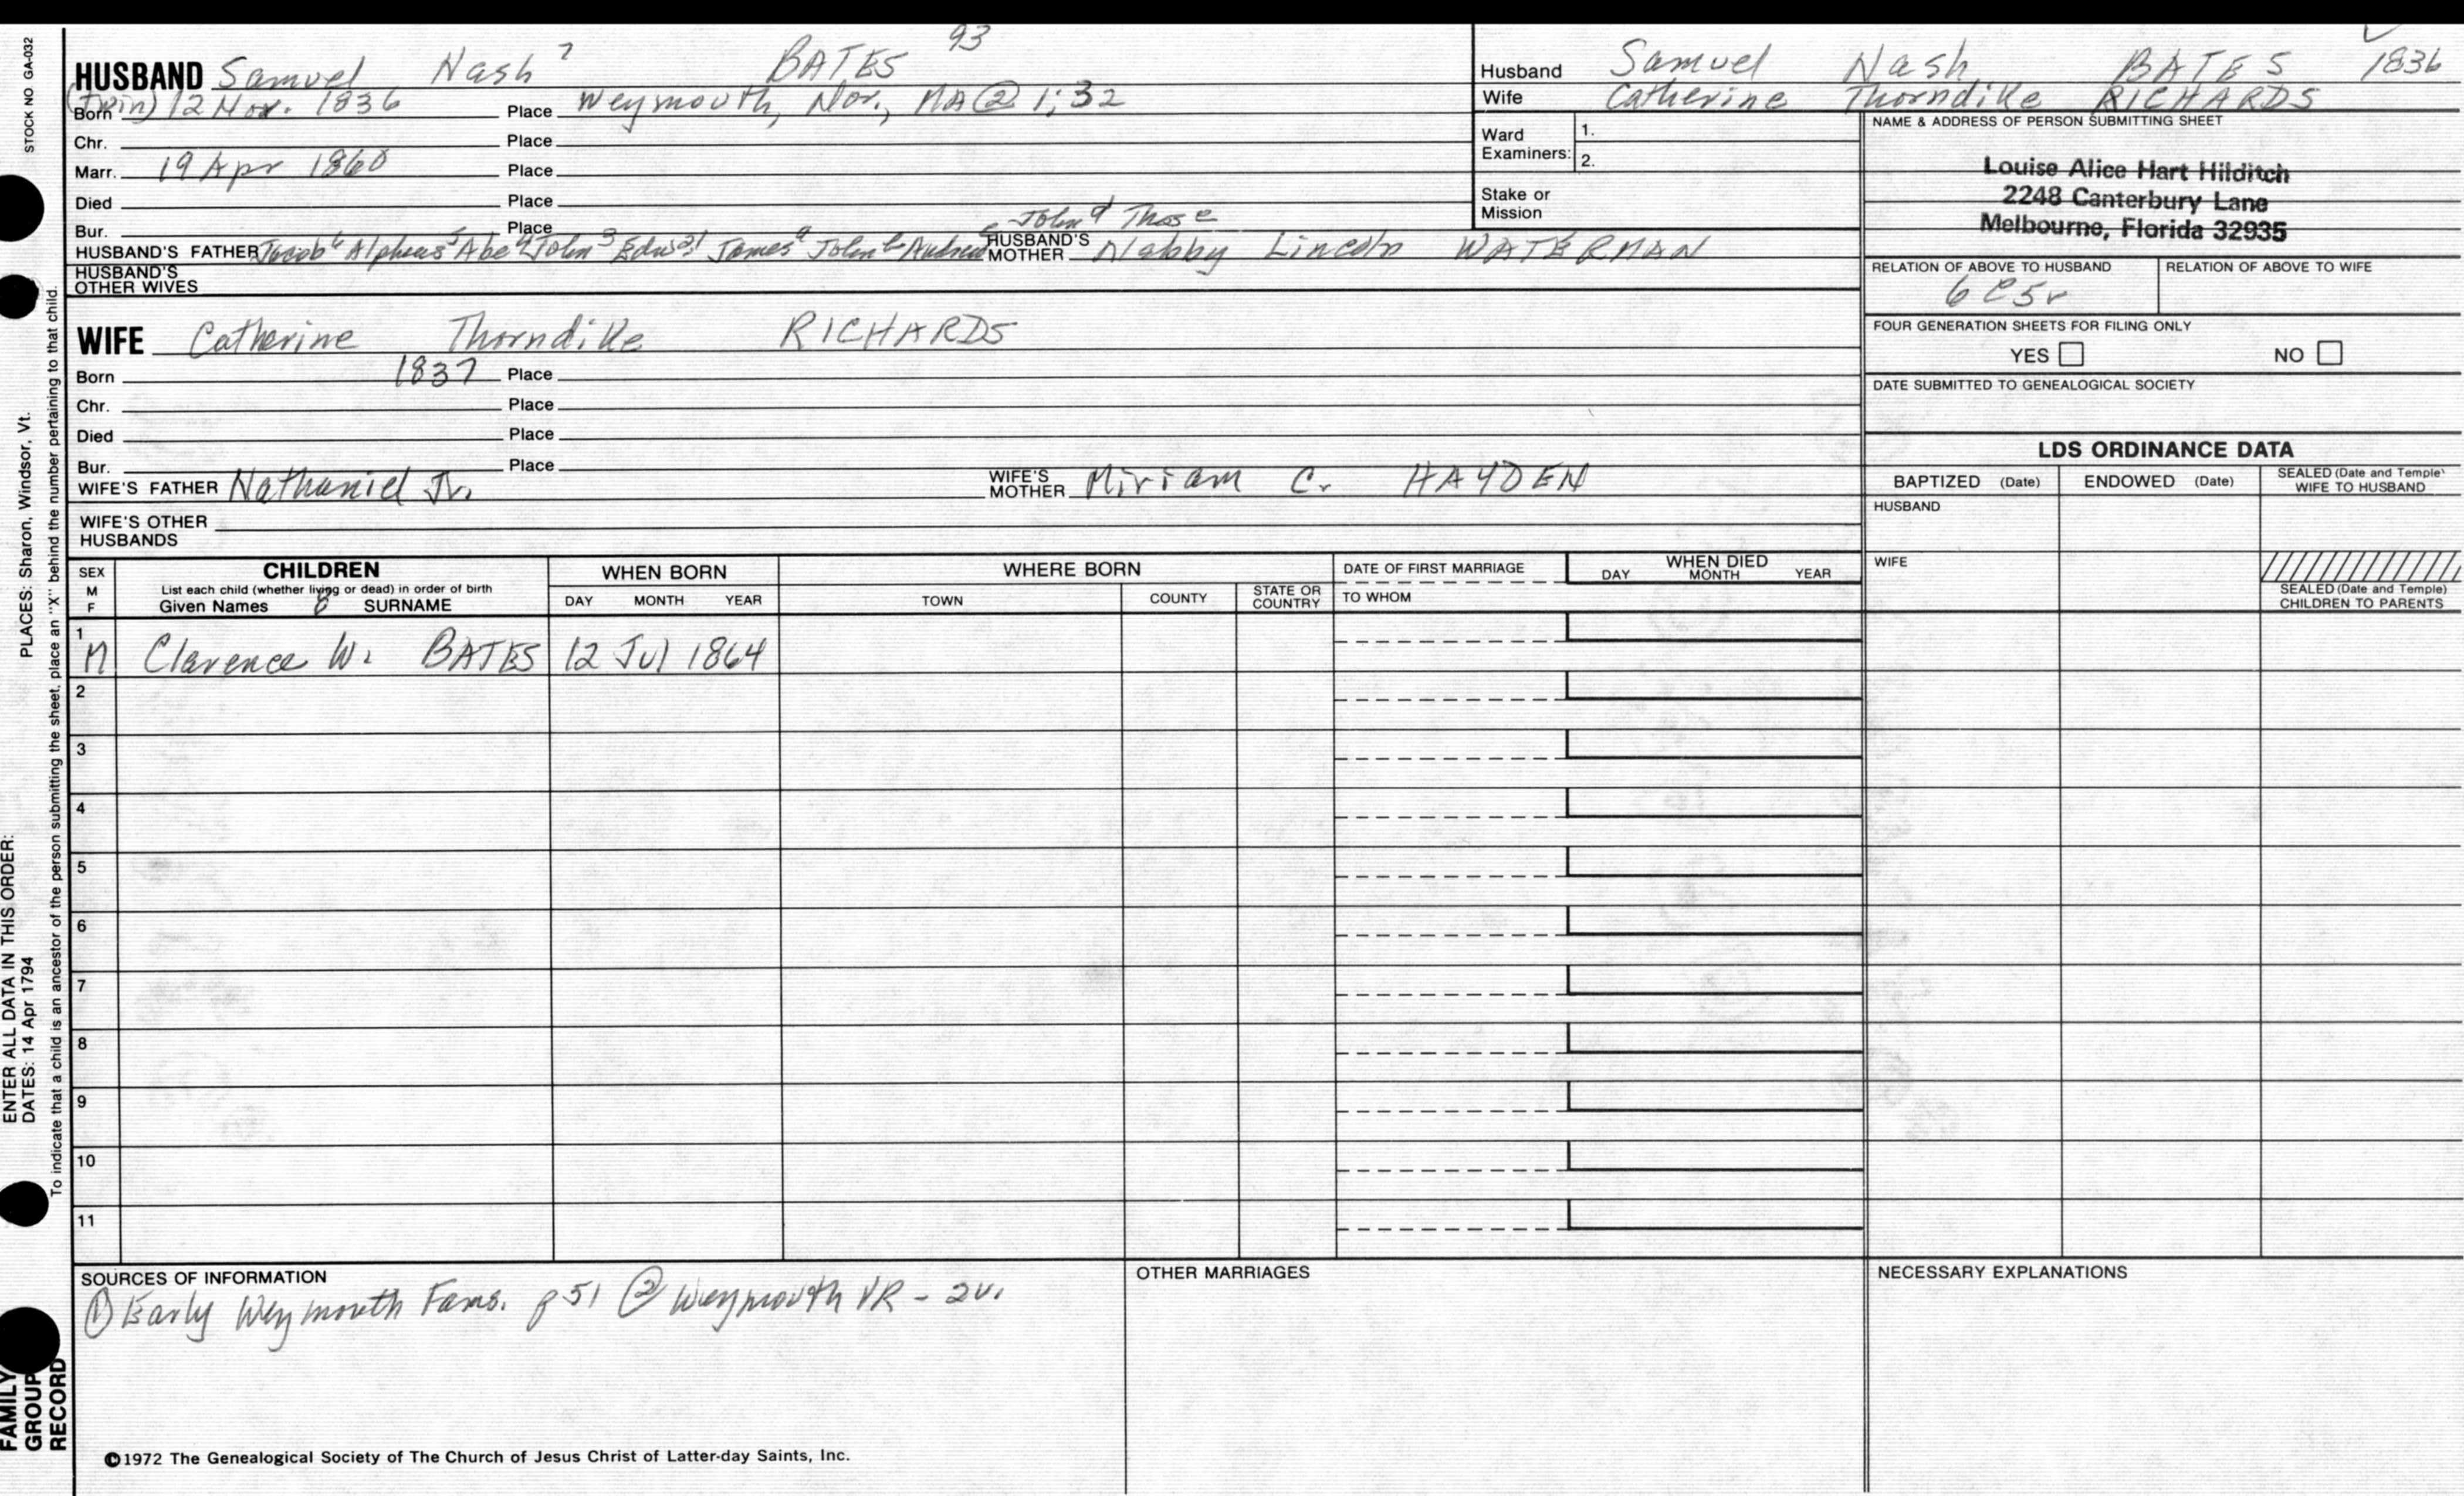 STOCK NO GA-032
PLACES: Sharon, Windsor, Vt.
ENTER ALL DATA IN THIS ORDER:
DATES: 14 Apr 1794
To indicate that a child is an ancestor of the person submitting the sheet, place an "X" behind the number pertaining to that child.
FAMILY
GROUP
RECORD
93
HUSBAND Samuel Nash 7 BATES
(Twin)
Born 12 Nov. 1836 Place Weymouth, Nor., MA @ 1:32
Chr. Place
Marr. 19 Apr 1860 Place
Died Place
Bur. Place
John d Thos e
HUSBAND'S FATHER Jacob 6 Alpheus 5 Abe 4 John 3 Edw 2 James a John b Andrew c HUSBAND'S MOTHER Nabby Lincoln WATERMAN
HUSBAND'S OTHER WIVES
WIFE Catherine Thorndike RICHARDS
Born 1837 Place
Chr. Place
Died Place
Bur. Place
WIFE'S FATHER Nathaniel Jr. WIFE'S MOTHER Miriam C. HAYDEN
WIFE'S OTHER HUSBANDS
Husband Samuel Nash BATES 1836
Wife Catherine Thorndike RICHARDS
Ward Examiners: 1.
2.
Stake or Mission
NAME & ADDRESS OF PERSON SUBMITTING SHEET
Louise Alice Hart Hilditch
2248 Canterbury Lane
Melbourne, Florida 32935
RELATION OF ABOVE TO HUSBAND RELATION OF ABOVE TO WIFE
6C5r
FOUR GENERATION SHEETS FOR FILING ONLY
YES NO
DATE SUBMITTED TO GENEALOGICAL SOCIETY
LDS ORDINANCE DATA
BAPTIZED (Date) ENDOWED (Date) SEALED (Date and Temple) WIFE TO HUSBAND
HUSBAND
WIFE
SEALED (Date and Temple) CHILDREN TO PARENTS
SEX M F
CHILDREN
List each child (whether living or dead) in order of birth
Given Names 8 SURNAME
WHEN BORN
DAY MONTH YEAR
WHERE BORN
TOWN COUNTY STATE OR COUNTRY
DATE OF FIRST MARRIAGE
TO WHOM
WHEN DIED
DAY MONTH YEAR
1 M Clarence W. BATES 12 Jul 1864
2
3
4
5
6
7
8
9
10
11
SOURCES OF INFORMATION
① Early Weymouth Fams. p 51 ② Weymouth VR - 2v.
OTHER MARRIAGES
NECESSARY EXPLANATIONS
©1972 The Genealogical Society of The Church of Jesus Christ of Latter-day Saints, Inc.